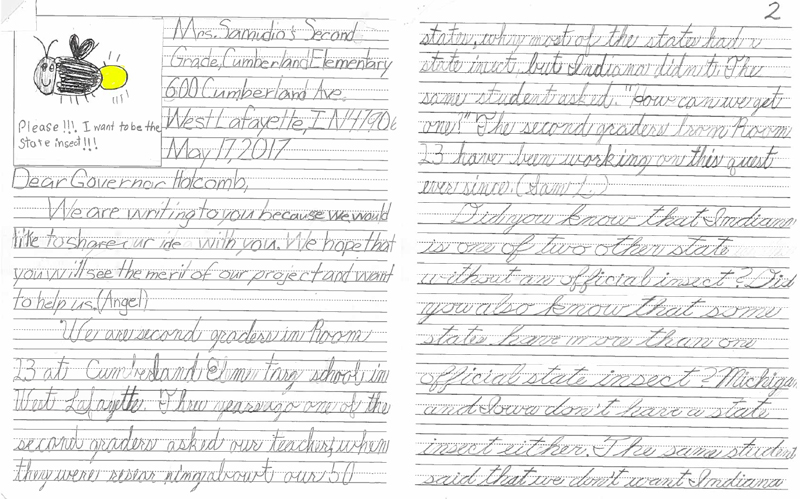 Mrs. Samudio's Second
Grade, Cumberland Elementary
600 Cumberland Ave.
West Lafayette, IN 47906
May 17, 2017
Please!!!. I want to be the
State insect!!!
Dear Governor Holcomb,
We are writing to you because we would
like to share ur ide with you. We hope that
you will see the merit of our project and want
to help us. (Angel)
We are second graders in Room
23 at Cumberland Elementary school in
West Lafayette. Three years ago one of the
second graders asked our teacher, when
they were resear ning about our 50
2
states, why most of the states had a
state insect but Indiana didn't. The
same student asked. "How can we get
one?" The second graders from Room
23 have been working on this quest
ever since. (Sam L.)
Did you know that Indiana
is one of two other state
without an official insect? Did
you also know that some
states have more than one
official state insect? Michigan
and Iowa don't have a state
insect either. The same student
said that we don't want Indiana